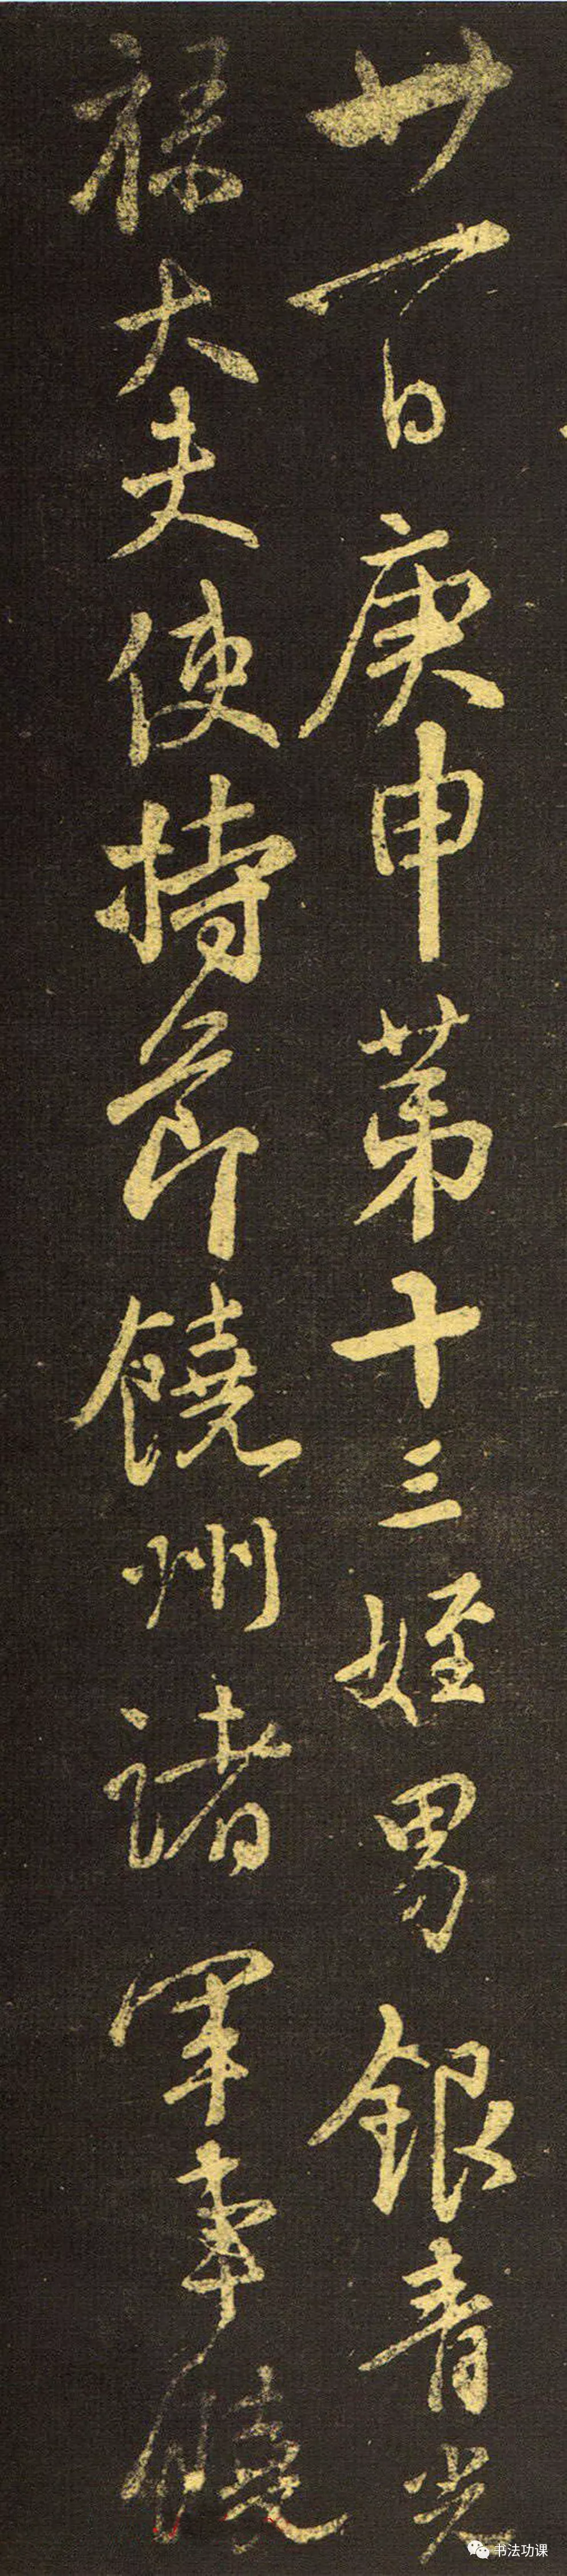 廿一日庚申第十三姪男銀青光
祿大夫使持節饒州諸軍事饒
书法功课